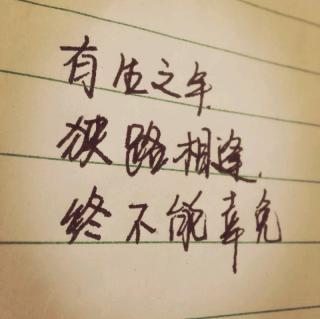 有生之年
狭路相逢.
终不能幸免